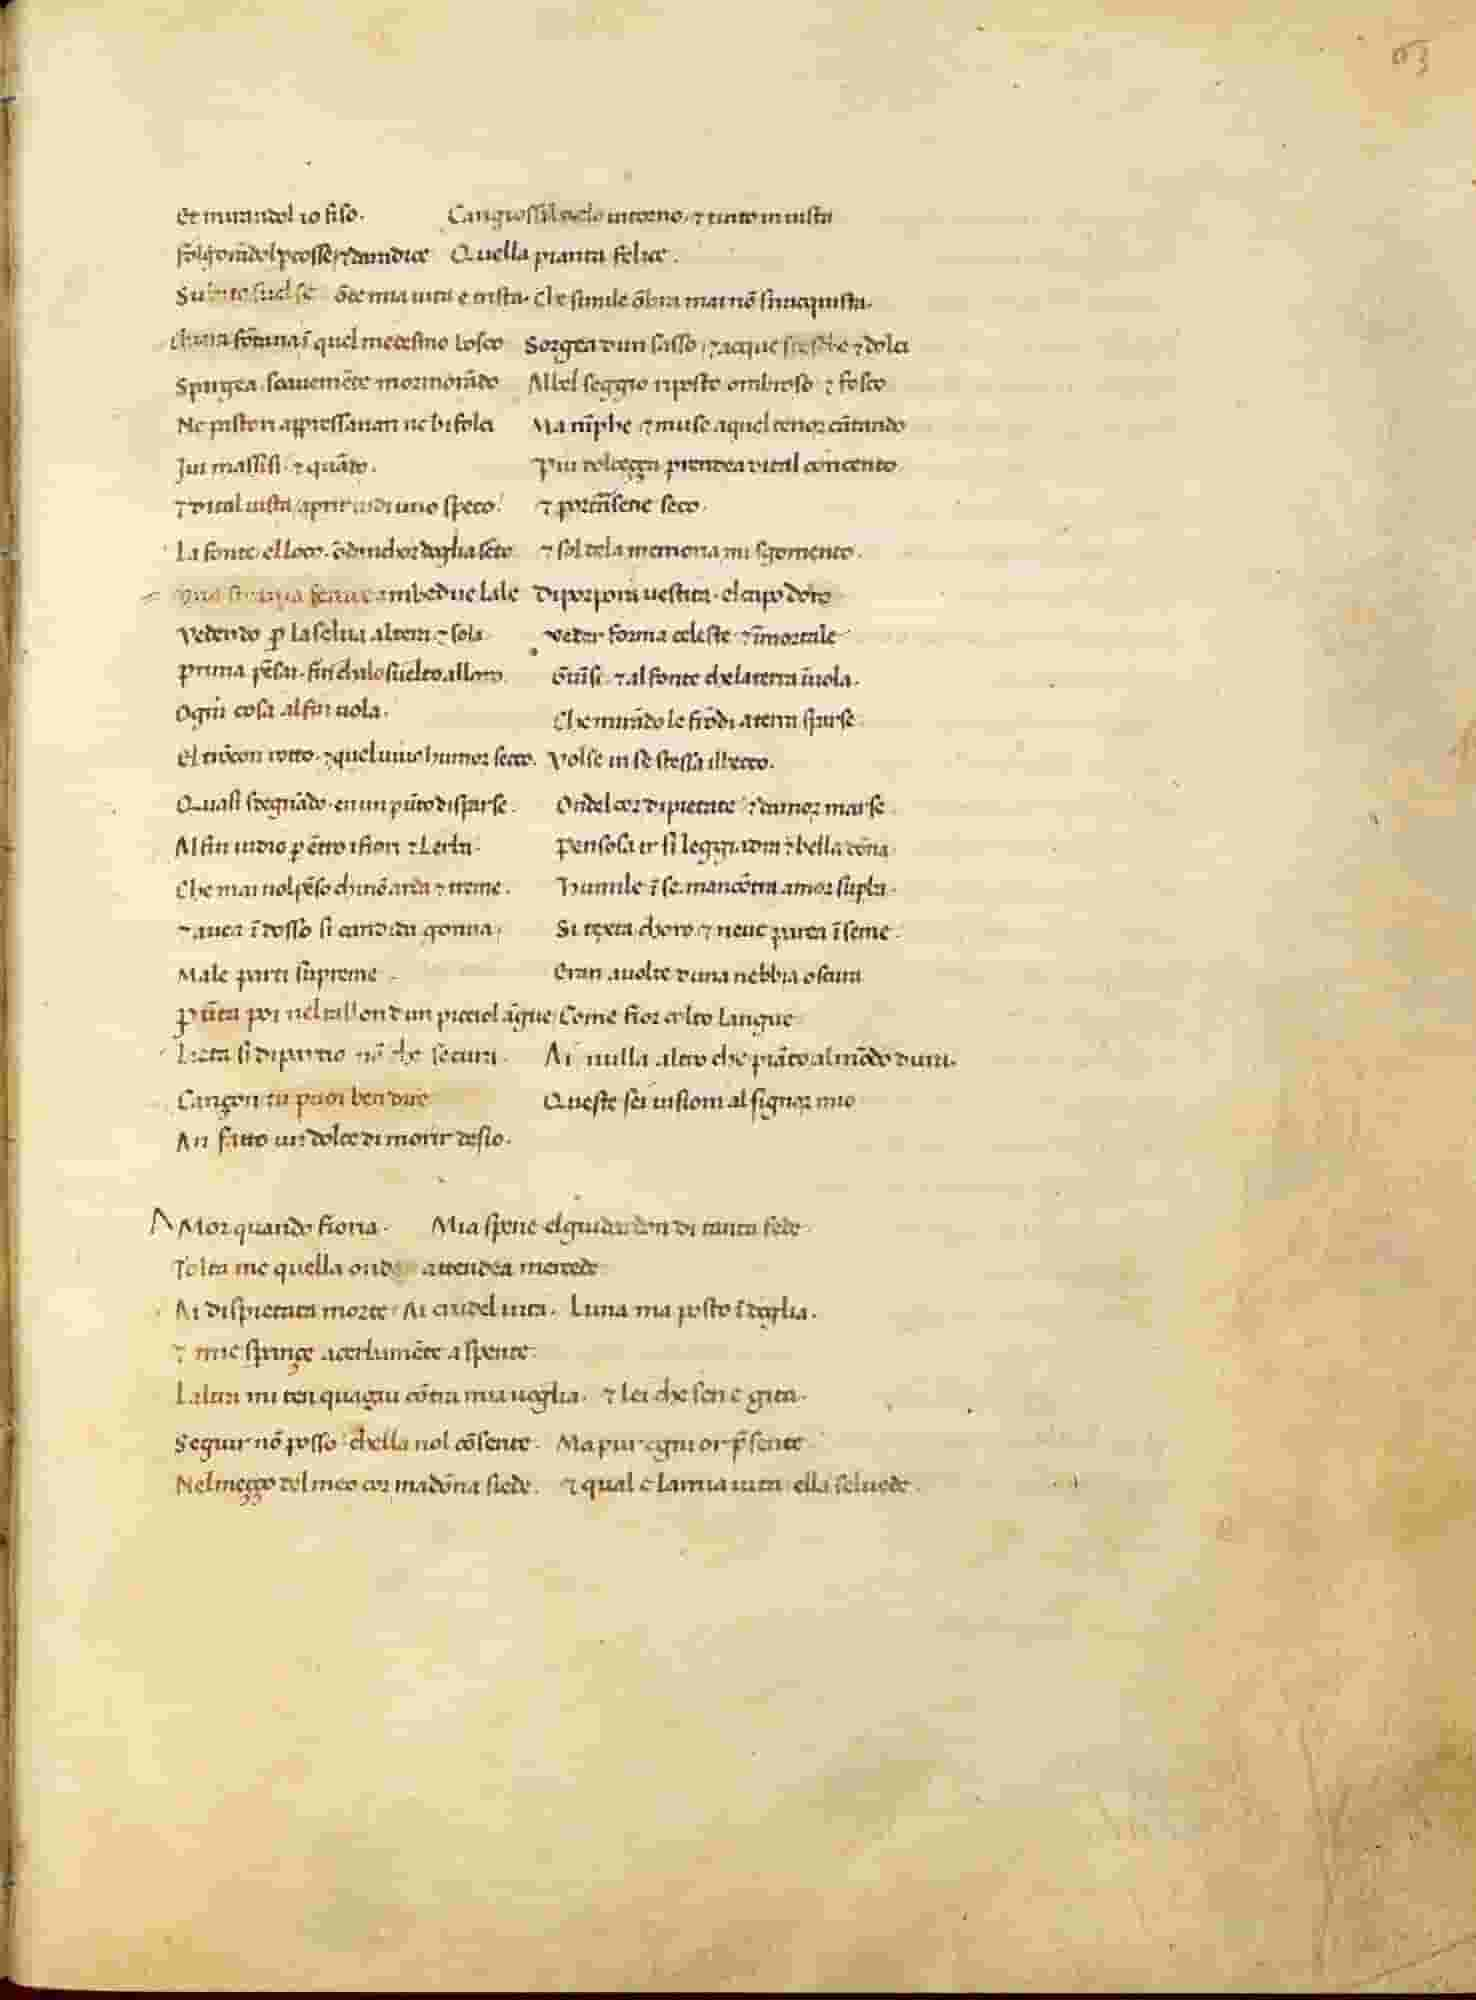 63
Et mirandol io fiso. Cangiossil cielo intorno. ⁊ tinto in uista
folgorãdol pcosse ⁊ da radice Quella pianta felice.
Subito suelse õde mia uita e trista. che simile õbra mai nõ si racquista.
Chiara fõtana ĩ quel medesmo bosco Sorgea dun sasso. ⁊ acque fresche ⁊ dolci
Spargea. soauemẽte mormorãdo Al bel seggio riposto ombroso ⁊ fosco
Ne pastori appressauan ne bifolci Ma nĩphe ⁊ muse a quel tenor cãtando
Iui massisi. ⁊ quãdo. Piu dolceçça prendea di tal concento
⁊ di tal uista. aprir uidi uno speco. ⁊ portarsene seco.
La fonte el loco. õdanchor doglia sẽto ⁊ sol de la memoria mi sgomento.
Una strania fenice ambedue lale Di porpora uestita. el capo doro
Vedendo p la selua altera ⁊ sola. veder forma celeste ⁊ ĩmortale
Prima pẽsai. fin chalo suelto alloro. Giũse. ⁊ al fonte che la terra ĩuola.
Ogni cosa al fin uola. Che mirãdo le frõdi a terra sparse
El trõcon rotto. ⁊ quel uiuo humor secco. Volse in se stessa il becco.
Quasi sdegnãdo. en un pũto disparse. Ondel cor di pietate ⁊ damor marse.
Al fin uidio p ẽtro i fiori ⁊ lerba. Pensosa ir si leggiadra ⁊ bella dõna.
Che mai nol pẽso chinõ arda ⁊ treme. Humile ĩ se. ma ncõtra amor supba.
⁊ auea ĩ dosso si candida gonna. Si texta choro ⁊ neue parea ĩseme.
Male parti supreme Eran auolte duna nebbia oscura
Pũta poi nel tallon dun picciol ãgue Come fior colto langue
Lieta si dipartio nõ che secura. Ai nulla altro che piãto al mõdo dura.
Cançon tu puoi ben dire Queste sei uisioni al signor mio
An fatto un dolce di morir desio.
AMor quando fioria. Mia spene. el guidardon di tanta fede.
Tolta me quella ondio attendea mercede
Ai dispietata morte Ai crudel uita. Luna ma posto ĩ doglia.
⁊ mie sperançe acerbamẽte a spente.
Laltra mi ten quagiu cõtra mia uoglia. ⁊ lei che sen e gita.
Seguir nõ posso. chella nol cõsente. Ma pur ogni or p̃sente
Nel meçço del meo cor madõna siede. ⁊ qual e la mia uita ella sel uede.